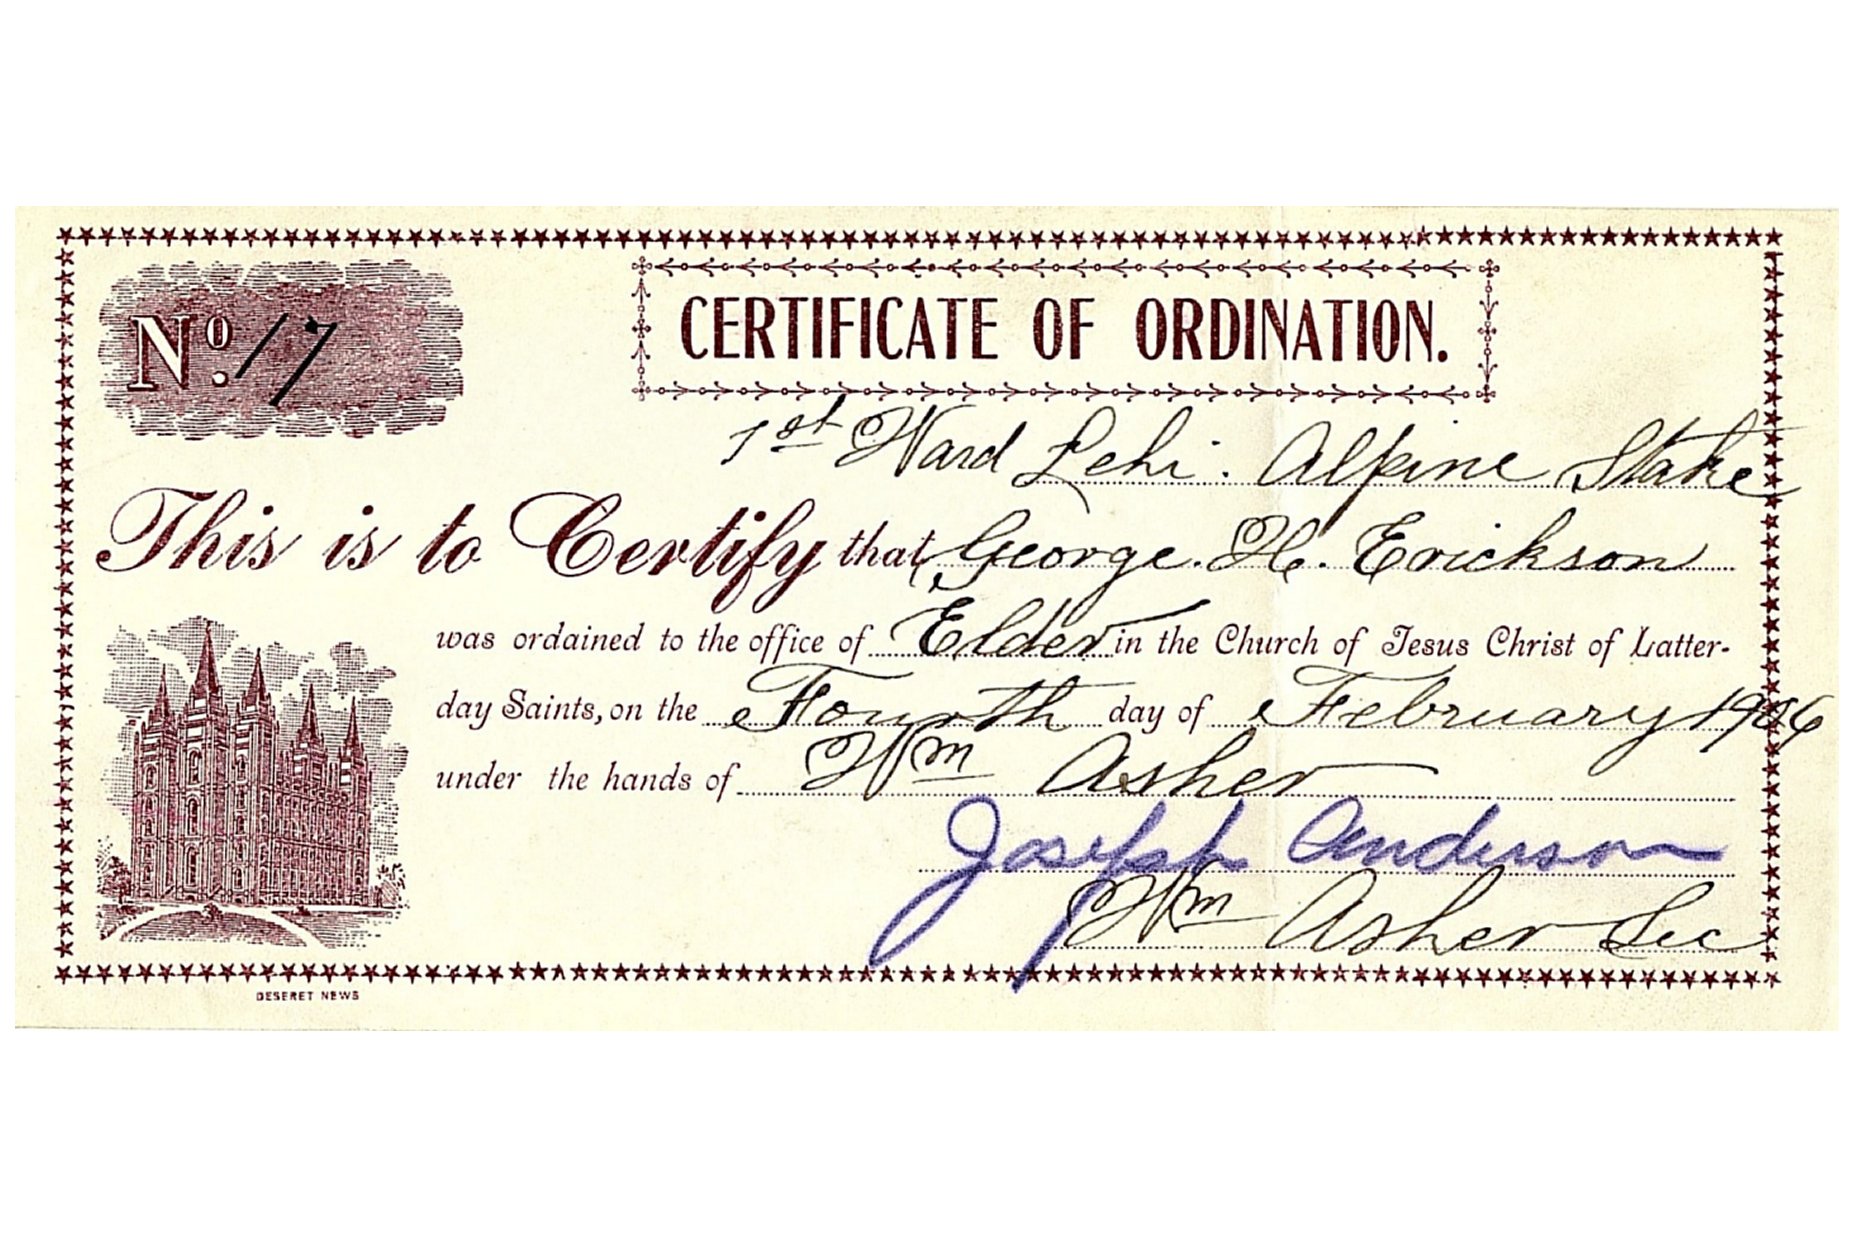 No. 17
CERTIFICATE OF ORDINATION.
1st Ward Lehi. Alpine Stake
This is to Certify that George. H. Erickson
was ordained to the office of Elder in the Church of Jesus Christ of Latter-
day Saints, on the Fourth day of February 1906
under the hands of Wm Asher
Joseph Anderson
Wm Asher Sec
DESERET NEWS